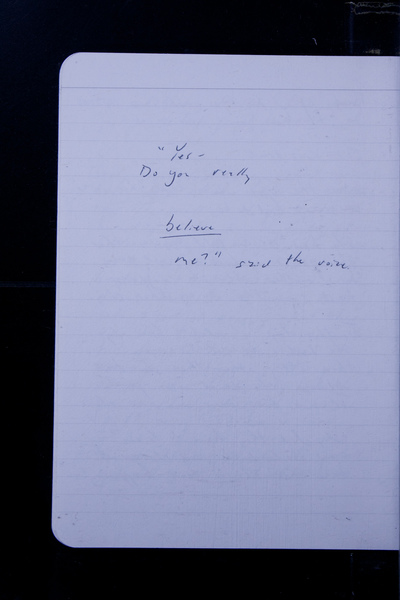 "Yes-
Do you really
believe
me?" said the voice